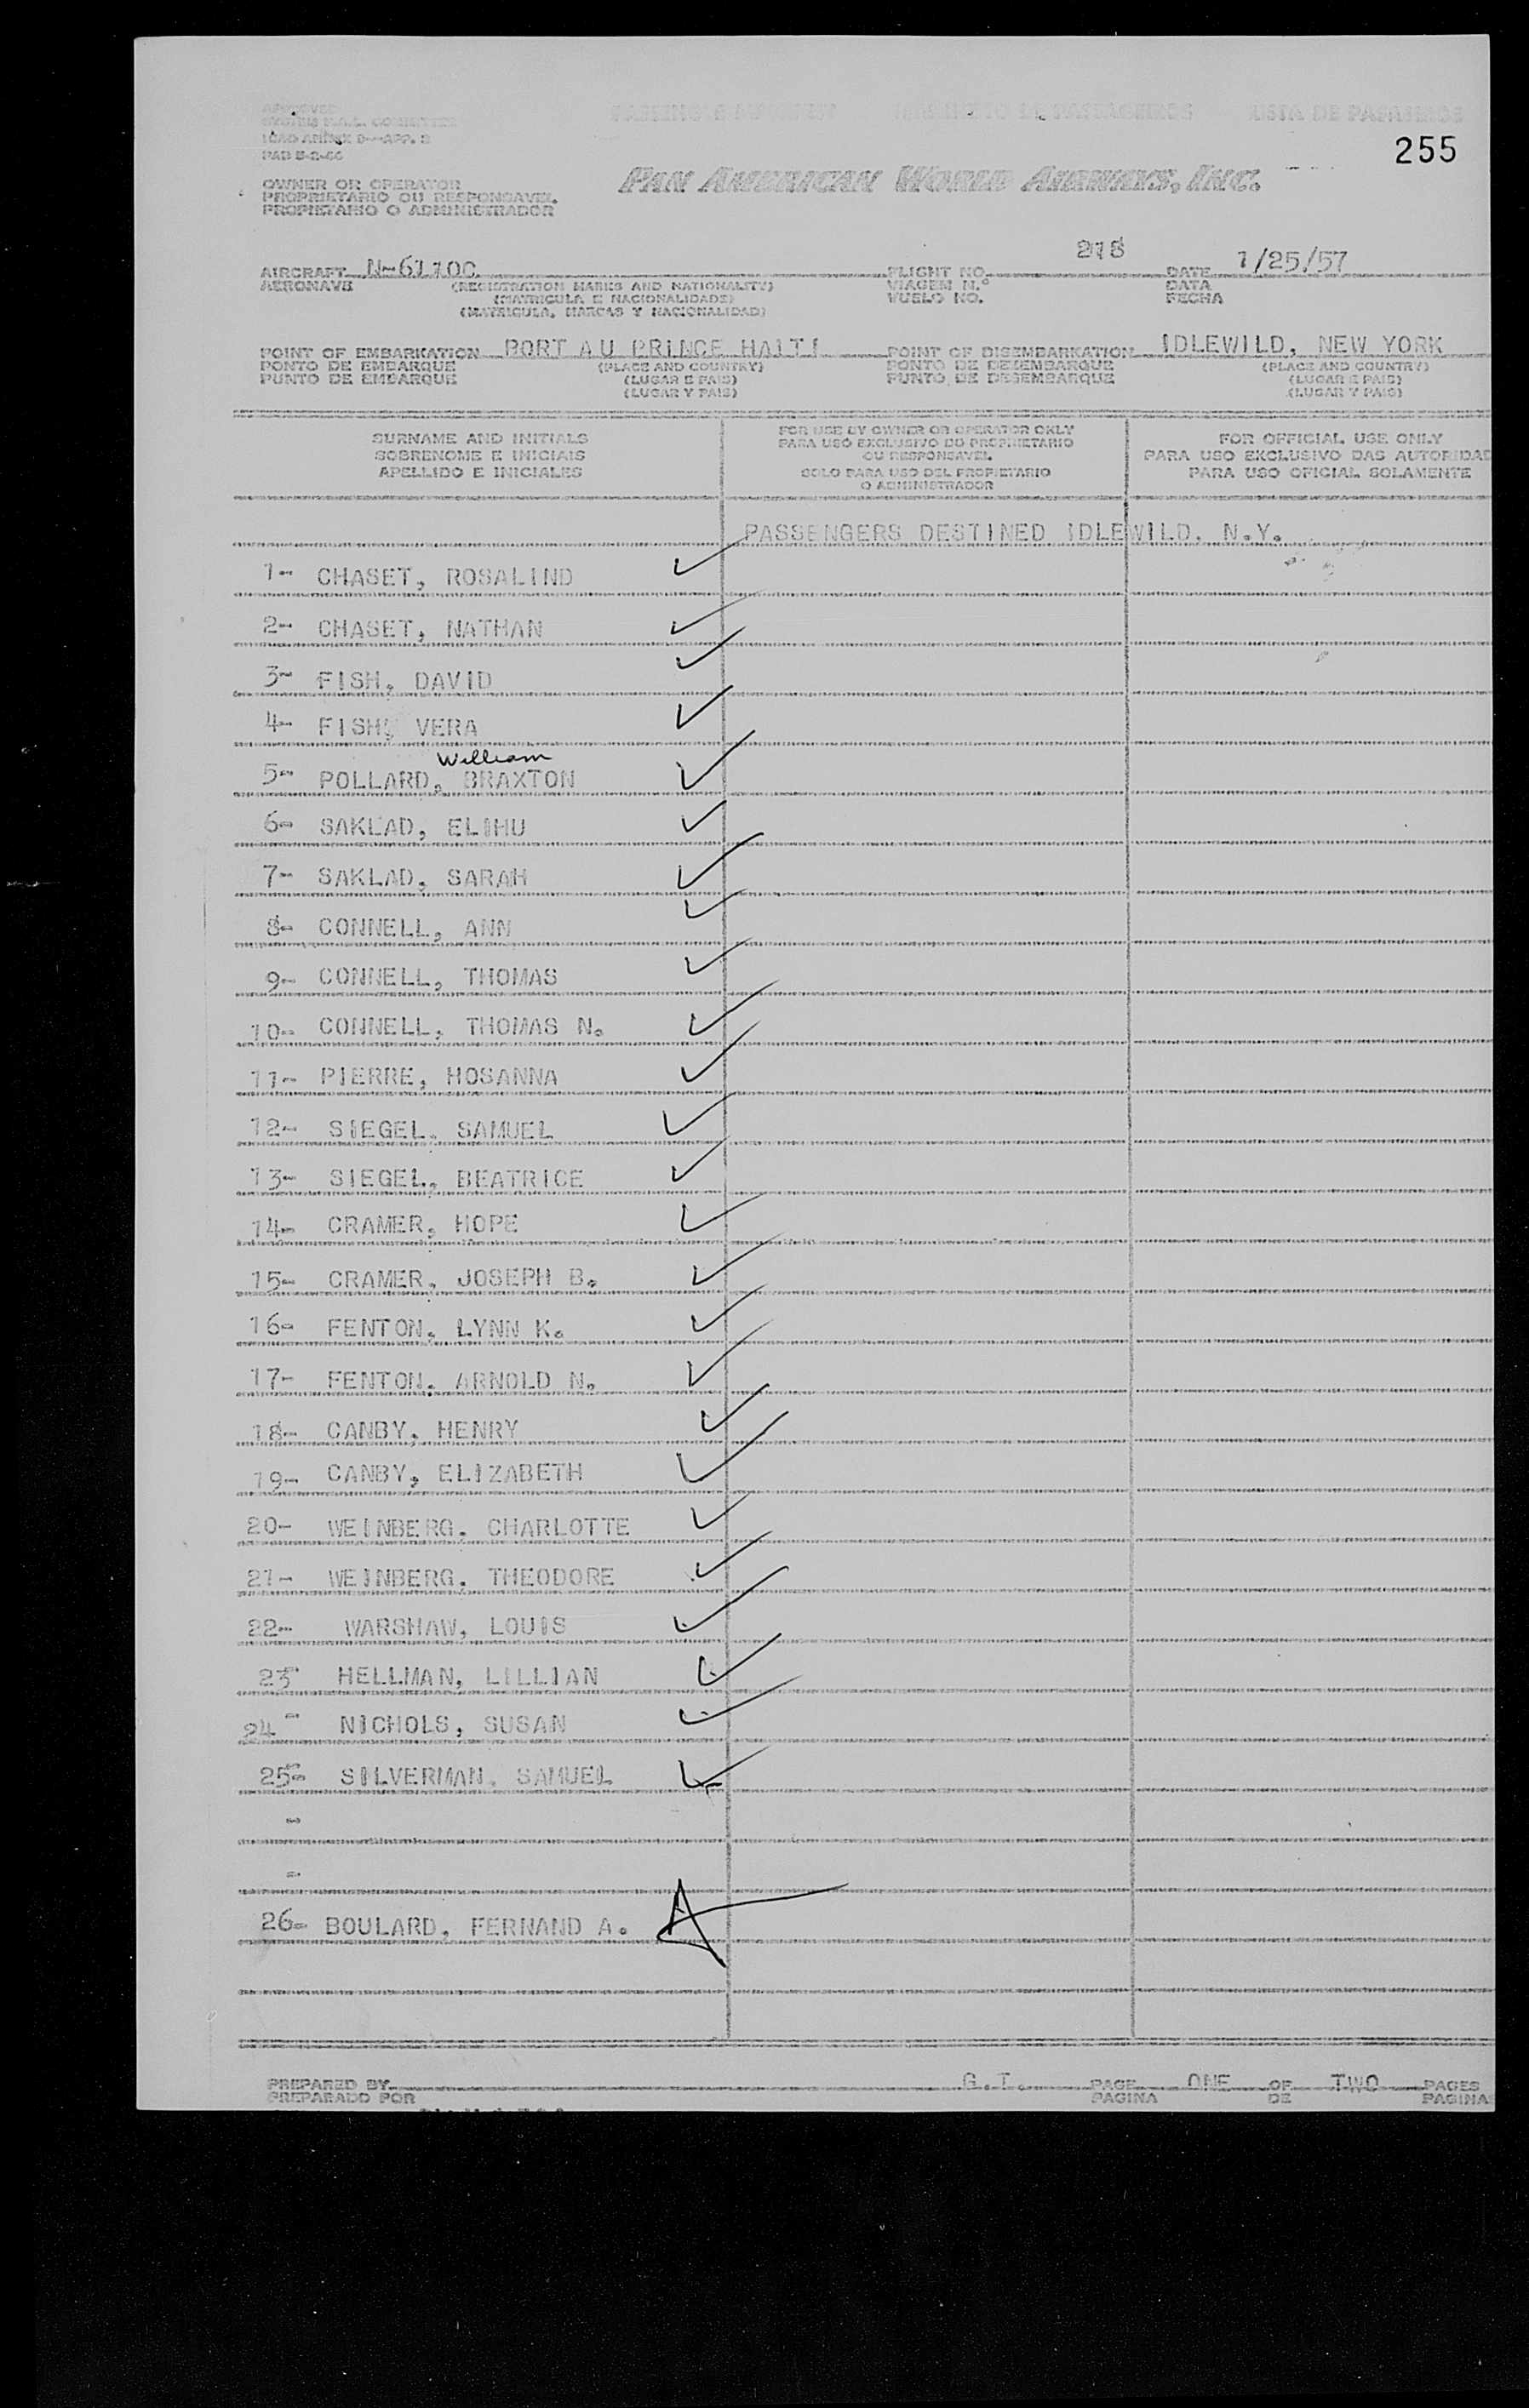 PASSENGER MANIFEST MANIFESTO DE PASSAGEIROS LISTA DE PASAJEROS
ICAO ANNEX 9—APP. 2
255
OWNER OR OPERATOR
PROPRIETARIO OU RESPONSAVEL
PROPIETARIO O ADMINISTRADOR
PAN AMERICAN WORLD AIRWAYS, INC.
AIRCRAFT N-6110C FLIGHT NO. 218 DATE 1/25/57
AERONAVE (REGISTRATION MARKS AND NATIONALITY) VIAGEM N.º DATA
(MATRICULA E NACIONALIDADE) VUELO NO. FECHA
(MATRICULA, MARCAS Y NACIONALIDAD)
POINT OF EMBARKATION PORT AU PRINCE HAITI POINT OF DISEMBARKATION IDLEWILD, NEW YORK
PONTO DE EMBARQUE (PLACE AND COUNTRY) PONTO DE DESEMBARQUE (PLACE AND COUNTRY)
PUNTO DE EMBARQUE (LUGAR E PAIS) PUNTO DE DESEMBARQUE (LUGAR E PAIS)
(LUGAR Y PAIS) (LUGAR Y PAIS)
SURNAME AND INITIALS
SOBRENOME E INICIAIS
APELLIDO E INICIALES
FOR USE BY OWNER OR OPERATOR ONLY
PARA USO EXCLUSIVO DO PROPRIETARIO
OU RESPONSAVEL
SOLO PARA USO DEL PROPIETARIO
O ADMINISTRADOR
FOR OFFICIAL USE ONLY
PARA USO EXCLUSIVO DAS AUTORIDAD
PARA USO OFICIAL SOLAMENTE
PASSENGERS DESTINED IDLEWILD, N.Y.
1- CHASET, ROSALIND
2- CHASET, NATHAN
3- FISH, DAVID
4- FISH, VERA
William
5- POLLARD, BRAXTON
6- SAKLAD, ELIHU
7- SAKLAD, SARAH
8- CONNELL, ANN
9- CONNELL, THOMAS
10- CONNELL, THOMAS N.
11- PIERRE, HOSANNA
12- SIEGEL, SAMUEL
13- SIEGEL, BEATRICE
14- CRAMER, HOPE
15- CRAMER, JOSEPH B.
16- FENTON, LYNN K.
17- FENTON, ARNOLD N.
18- CANBY, HENRY
19- CANBY, ELIZABETH
20- WEINBERG, CHARLOTTE
21- WEINBERG, THEODORE
22- WARSHAW, LOUIS
23- HELLMAN, LILLIAN
24- NICHOLS, SUSAN
25- SILVERMAN, SAMUEL
-
-
26- BOULARD, FERNAND A.
PREPARED BY G.T. PAGE ONE OF TWO PAGES
PREPARADO POR PAGINA DE PAGINA